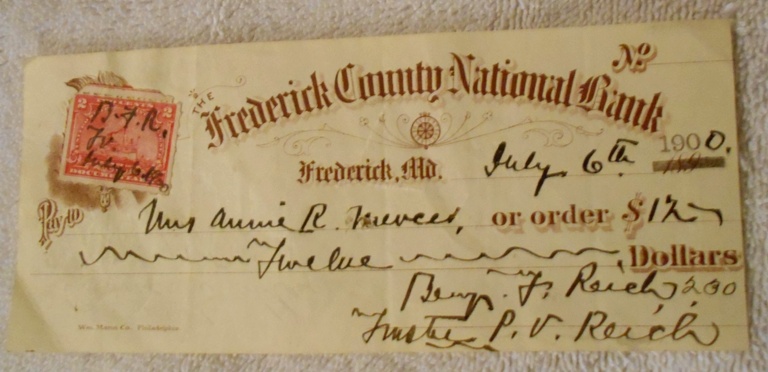 No
THE
Frederick County National Bank
2 2
B. F. R.
July 6
Frederick, Md. July 6th 1900.
Pay to Mrs Annie R. or order $12
Twelve Dollars
Benj. F. Reich,
Trustee P. V. Reich
Philadelphia